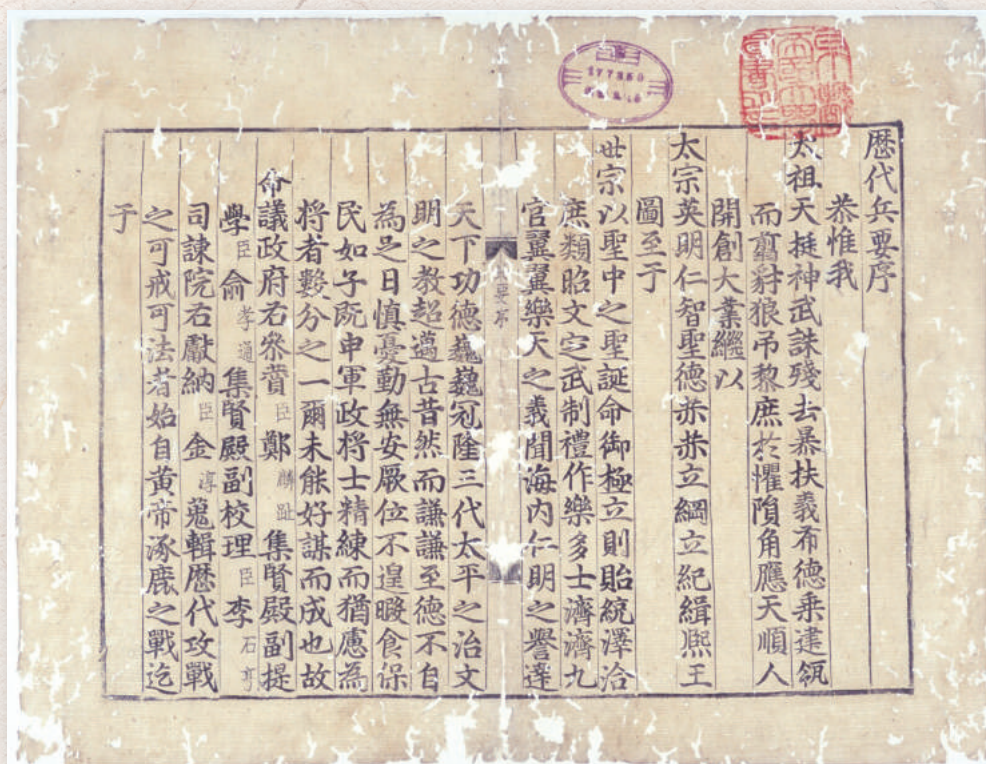 歷代兵要序
恭惟我
太祖天挺神武誅殘去暴扶義布德乘建瓴
而翦豺狼吊黎庶於懼隕角應天順人
開創大業繼以
太宗英明仁智聖德恭恭立綱立紀緝熙王
圖至于
世宗以聖中之聖誕命御極立則貽統澤洽
庶類昭文定武制禮作樂多士濟濟九
官翼翼樂天之義聞海內仁明之譽達
天下功德巍巍冠隆三代太平之治文
明之教超邁古昔然而謙謙至德不自
為足日慎憂動無安厥位不遑暇食保
民如子旣申軍政將士精練而猶慮為
將者數分之一爾未能好謀而成也故
命議政府右參賛臣鄭麟趾集賢殿副提
學臣俞孝通集賢殿副校理臣李石亨
司諫院右獻納臣金淳蒐輯歷代攻戰
之可戒可法者始自黃帝涿鹿之戰迄
于
177350